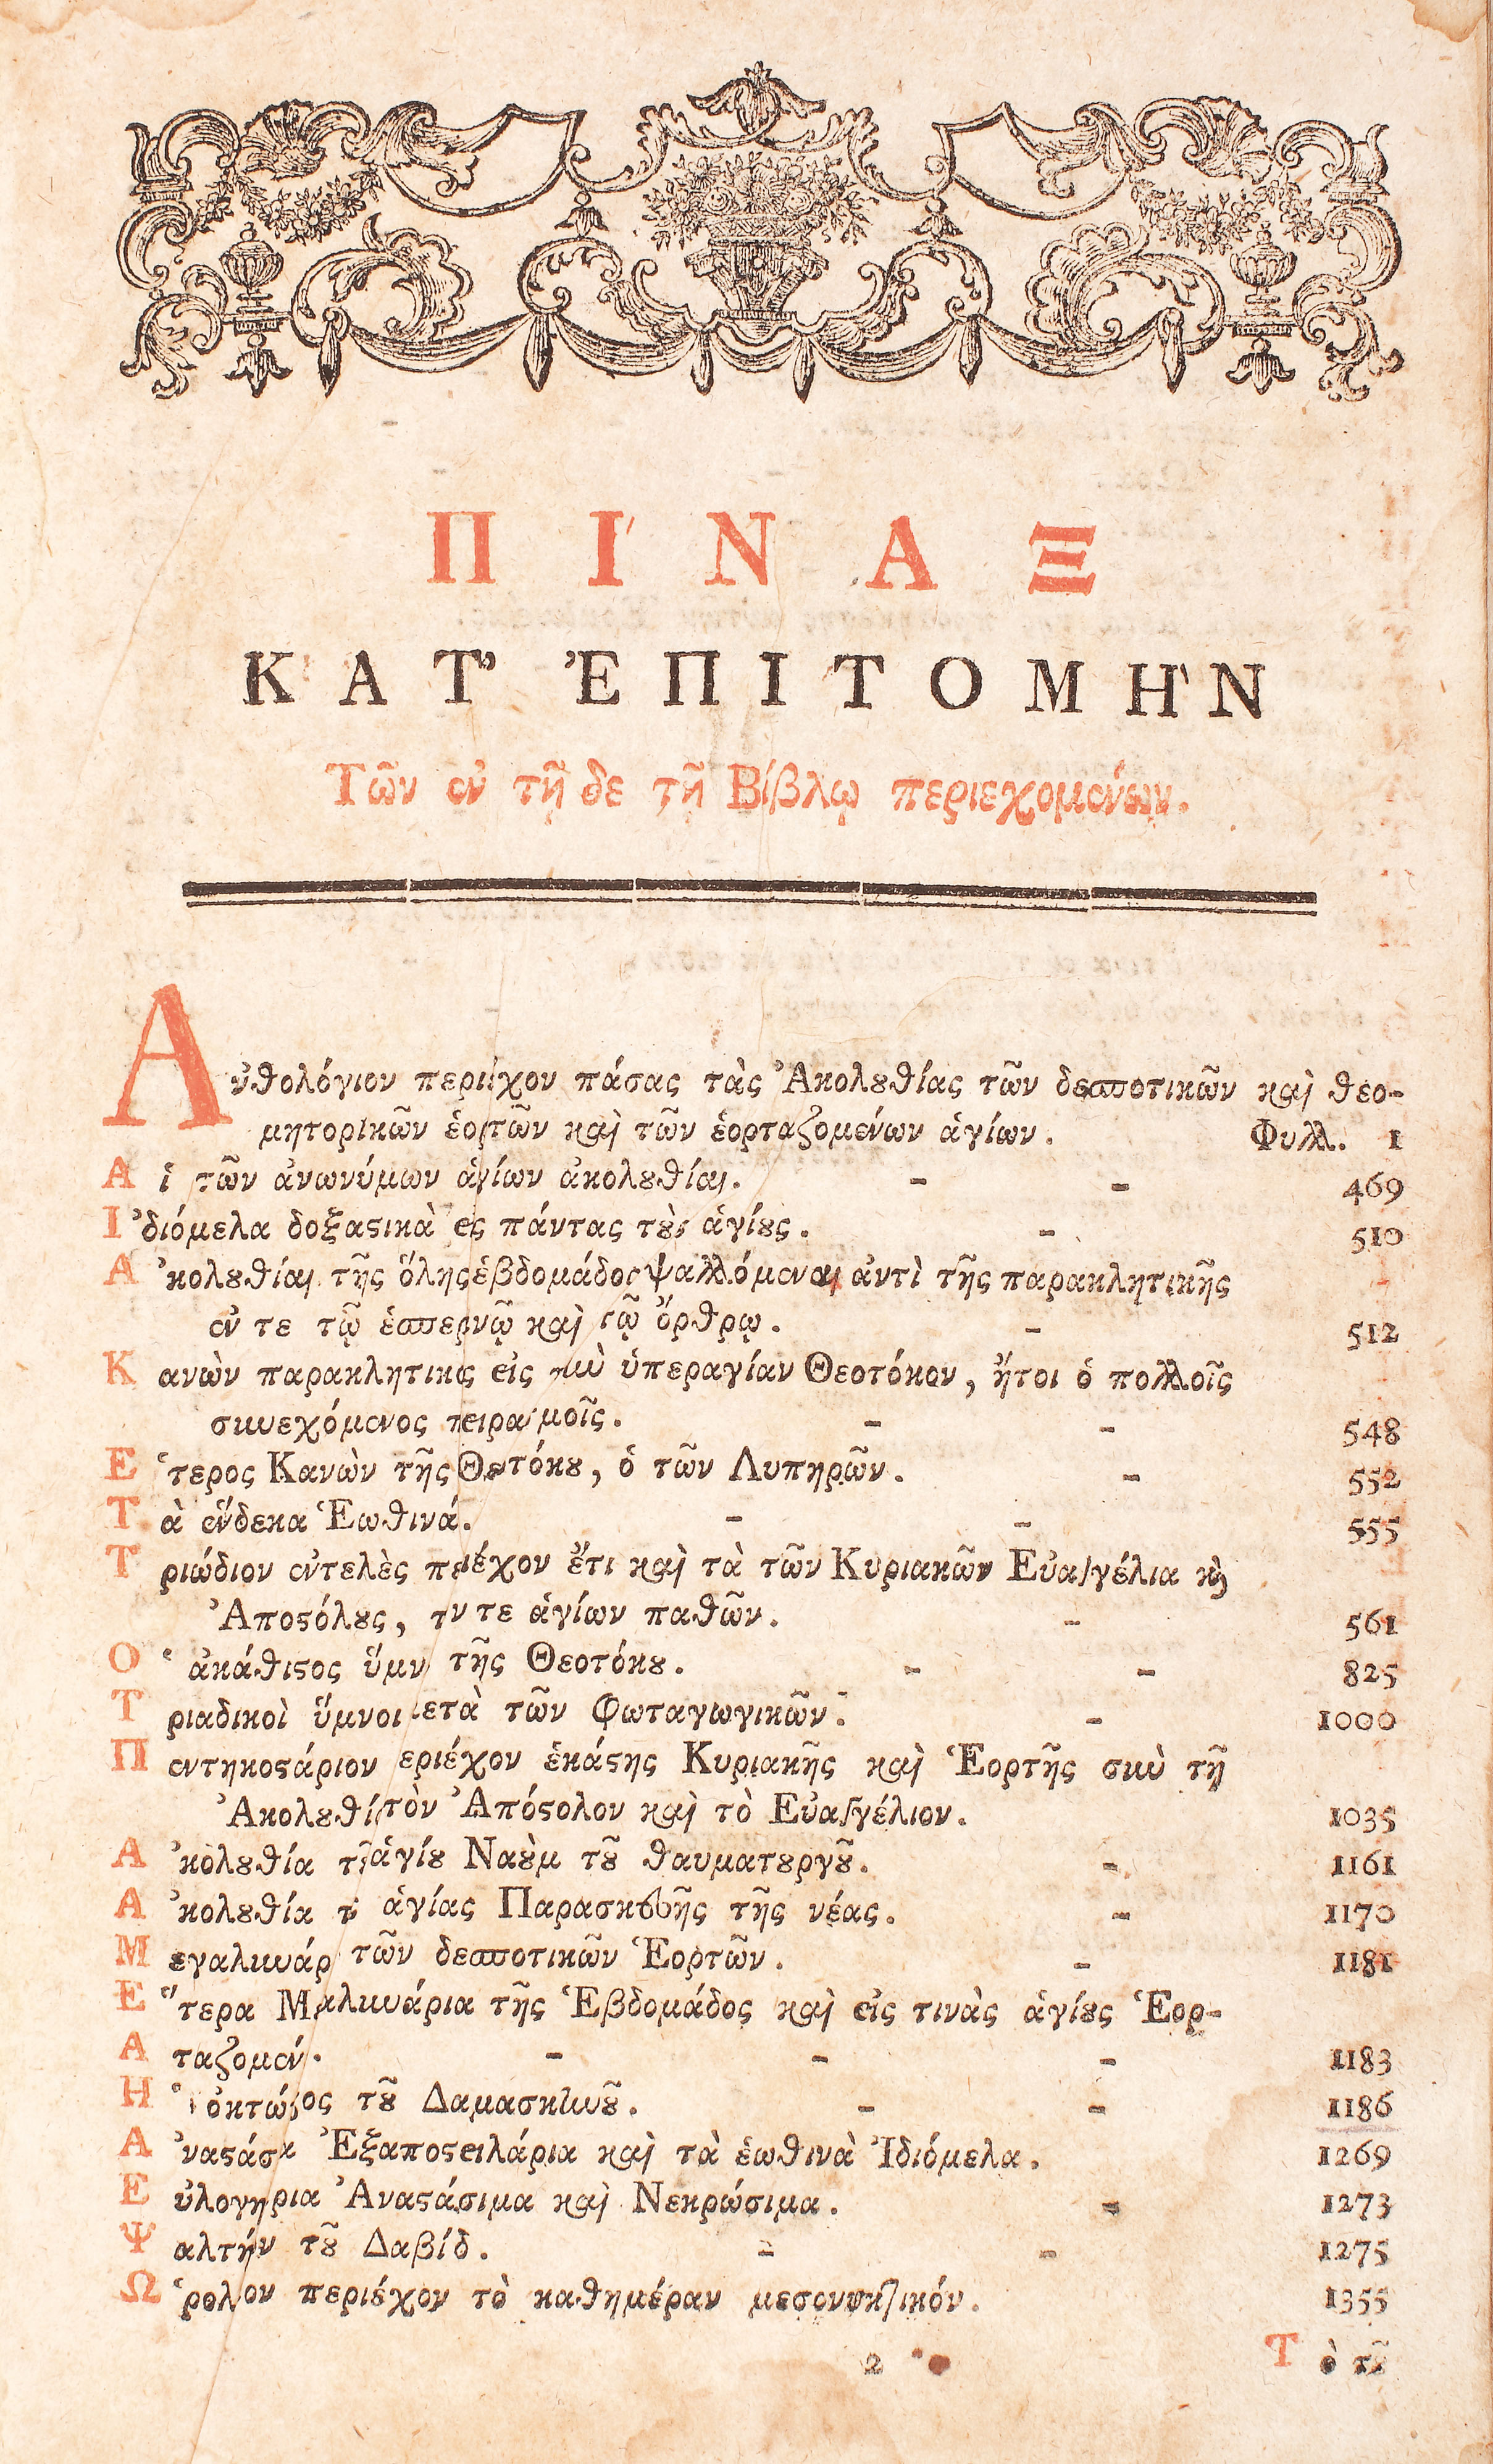 ΠΙ´ΝΑΞ
ΚΑΤ' ἘΠΙΤΟΜΗ`Ν
Τῶν ἐν τῇ δε τῇ Βίβλῳ περιεχομένων.
Ἀνθολόγιον περιέχον πάσας τὰς Ἀκολȣθίας τῶν δεσποτικῶν καὶ θεο-
μητορικῶν ἑορτῶν καὶ τῶν ἑορταζομένων ἁγίων. Φυλλ. 1
Αἱ τῶν ἀνωνύμων ἁγίων ἀκολȣθίαι. - - 469
Ἰδιόμελα δοξαϛικὰ εἰς πάντας τȣ̀ς ἁγίȣς. - 510
Ἀκολȣθίαι τῆς ὅλης ἑβδομάδος ψαλλόμεναι ἀντὶ τῆς παρακλητικῆς
ἐν τε τῷ ἑσπερνῷ καὶ τῷ ὄρθρῳ. - 512
Κανὼν παρακλητικὸς εἰς τὴν ὑπεραγίαν Θεοτόκον, ἤτοι ὁ πολλοῖς
συνεχόμενος πειρασμοῖς. - - 548
Ἕτερος Κανὼν τῆς Θεοτόκȣ, ὁ τῶν Λυπηρῶν. - 552
Τὰ ἕνδεκα Ἑωθινά. - - 555
Τριώδιον ἐντελὲς περιέχον ἔτι καὶ τὰ τῶν Κυριακῶν Εὐαγγέλια κỳ
Ἀποϛόλȣς, τῶν τε ἁγίων παθῶν. - 561
Ὁ ἀκάθιϛος ὕμνος τῆς Θεοτόκȣ. - - 825
Τριαδικοὶ ὕμνοι μετὰ τῶν Φωταγωγικῶν. - 1000
Πεντηκοϛάριον περιέχον ἑκάϛης Κυριακῆς καὶ Ἑορτῆς σὺν τῇ
Ἀκολȣθίᾳ τὸν Ἀπόϛολον καὶ τὸ Εὐαγγέλιον. 1035
Ἀκολȣθία τȣ͂ ἁγίȣ Ναȣ̀μ τȣ͂ θαυματȣργȣ͂. - 1161
Ἀκολȣθία τῆς ἁγίας Παρασκευῆς τῆς νέας. - 1170
Μεγαλυνάρια τῶν δεσποτικῶν Ἑορτῶν. - 1181
Ἕτερα Μεγαλυνάρια τῆς Ἑβδομάδος καὶ εἰς τινὰς ἁγίȣς Ἑορ-
Α ταζομέν. - - - 1183
Ἡ ὀκτώηχος τȣ͂ Δαμασκηνȣ͂. - - 1186
Ἀναϛάσιμα Ἐξαποϛειλάρια καὶ τὰ ἑωθινὰ Ἰδιόμελα. 1269
Εὐλογητάρια Ἀναϛάσιμα καὶ Νεκρώσιμα. - 1273
Ψαλτήριον τȣ͂ Δαβίδ. - - 1275
Ὡρολόγιον περιέχον τὸ καθημέραν μεσονυκτικόν. 1355
2 Τὸ τȣ͂